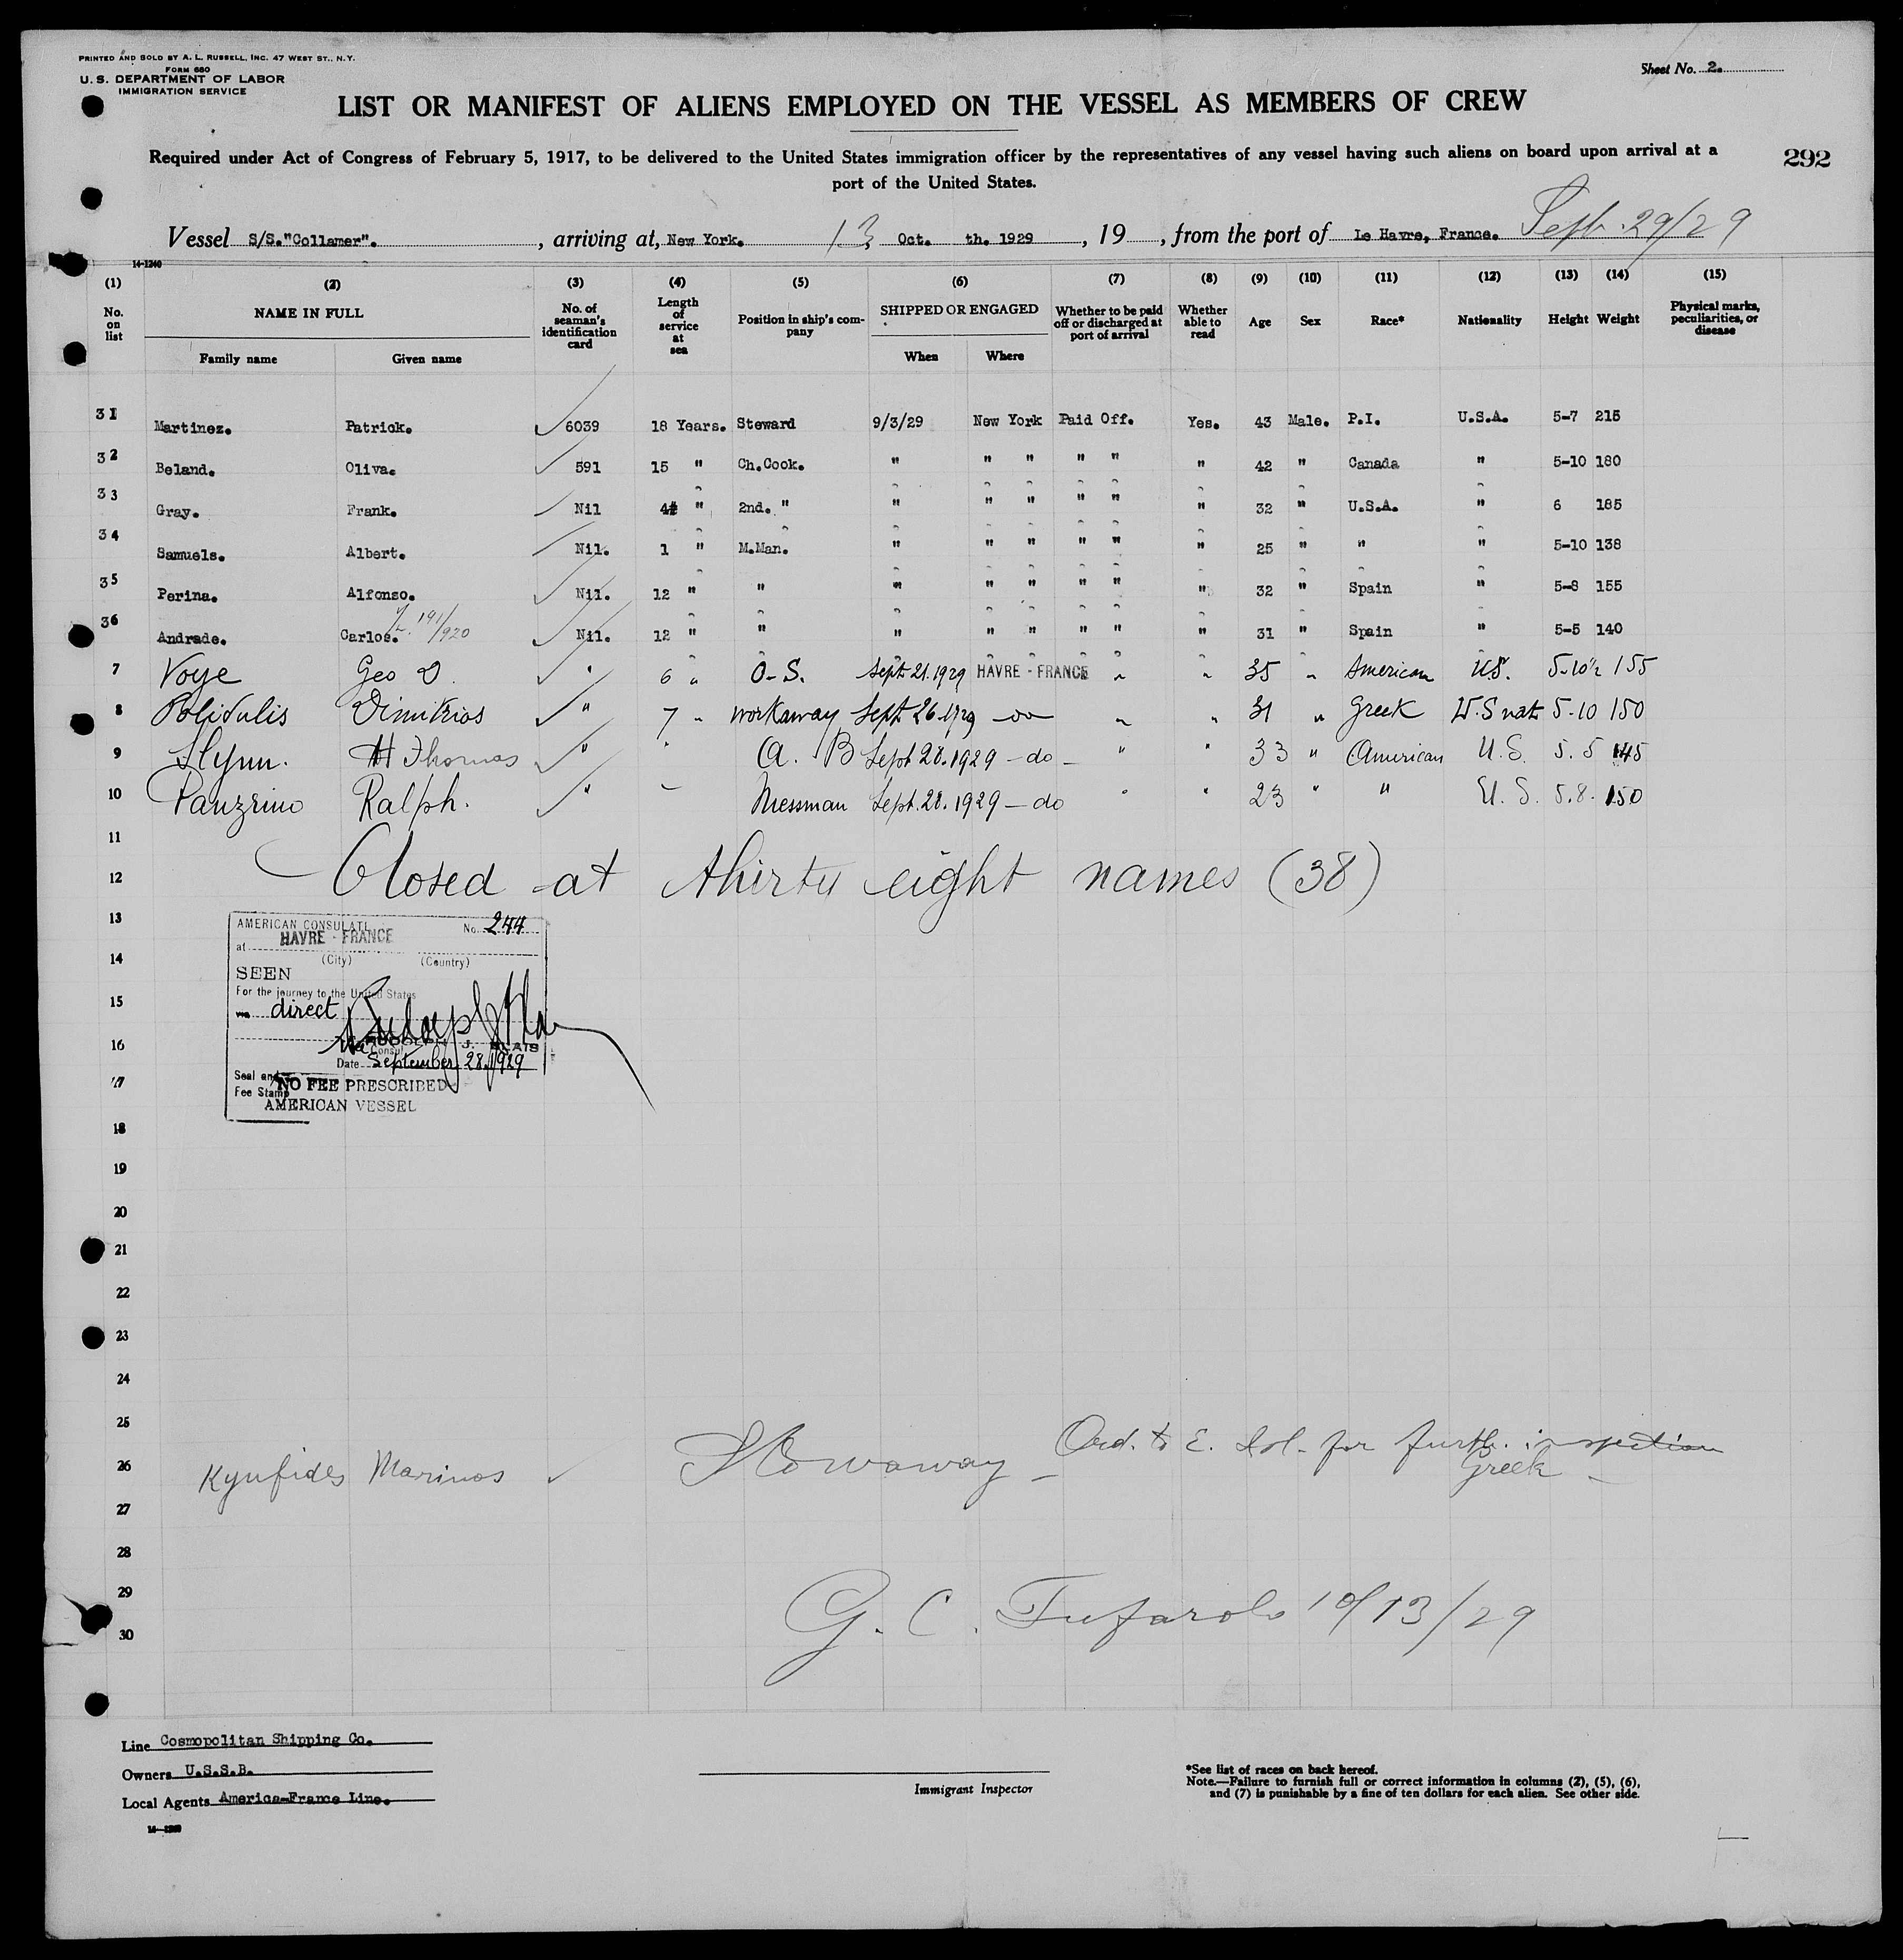 PRINTED AND SOLD BY A. L. RUSSELL, INC. 47 WEST ST., N.Y.
FORM 680
U. S. DEPARTMENT OF LABOR
IMMIGRATION SERVICE
Sheet No. 2.
LIST OR MANIFEST OF ALIENS EMPLOYED ON THE VESSEL AS MEMBERS OF CREW
Required under Act of Congress of February 5, 1917, to be delivered to the United States immigration officer by the representatives of any vessel having such aliens on board upon arrival at a
port of the United States.
292
Vessel S/S."Collamer". , arriving at, New York. 13 Oct. th. 1929 , 19 , from the port of Le Havre, France. Sept. 29/29
14-1240
(1) (2) (3) (4) (5) (6) (7) (8) (9) (10) (11) (12) (13) (14) (15)
No. on list NAME IN FULL No. of seaman's identification card Length of service at sea Position in ship's company SHIPPED OR ENGAGED Whether to be paid off or discharged at port of arrival Whether able to read Age Sex Race* Nationality Height Weight Physical marks, peculiarities, or disease
Family name Given name When Where
31 Martinez. Patrick. 6039 18 Years. Steward 9/3/29 New York Paid Off. Yes. 43 Male. P.I. U.S.A. 5-7 215
32 Beland. Oliva. 591 15 " Ch.Cook. " " " " " " 42 " Canada " 5-10 180
33 Gray. Frank. Nil 4 " 2nd. " " " " " " " 32 " U.S.A. " 6 185
34 Samuels. Albert. Nil. 1 " M.Man. " " " " " " 25 " " " 5-10 138
35 Perina. Alfonso. Nil. 12 " " " " " " " " 32 " Spain " 5-8 155
36 Andrade. Carlos. 191/920 Nil. 12 " " " " " " " " 31 " Spain " 5-5 140
7 Voye Geo D. " 6 " O-S. Sept 21.1929 HAVRE - FRANCE " " 35 " American US. 5-10½ 155
8 Politulis Dimitrios " 7 " workaway Sept 26.1929 -do- " " 31 " Greek U.S nat 5-10 150
9 Flynn. Thomas " " A. B Sept 28.1929 - do - " " 33 " American U.S. 5.5 145
10 Panzrino Ralph. " Messman Sept.28.1929 - do " " 23 " " U.S. 5.8. 150
11
12 Closed at thirty eight names (38)
13
14
15
16
17
18
19
20
21
22
23
24
25
26
27
28
29
30
AMERICAN CONSULATE No. 244
at HAVRE - FRANCE
(City) (Country)
SEEN
For the journey to the United States
via direct
Consul
Date September 28, 1929
Seal and
Fee Stamp
NO FEE PRESCRIBED
AMERICAN VESSEL
Ord. to E. Isl. for furth. inspection
Kynfides Marinos Stowaway - Greek -
G. C. Tufarolo 10/13/29
Line Cosmopolitan Shipping Co.
Owners U.S.S.B.
Local Agents America-France Line.
Immigrant Inspector
*See list of races on back hereof.
Note.—Failure to furnish full or correct information in columns (2), (5), (6),
and (7) is punishable by a fine of ten dollars for each alien. See other side.